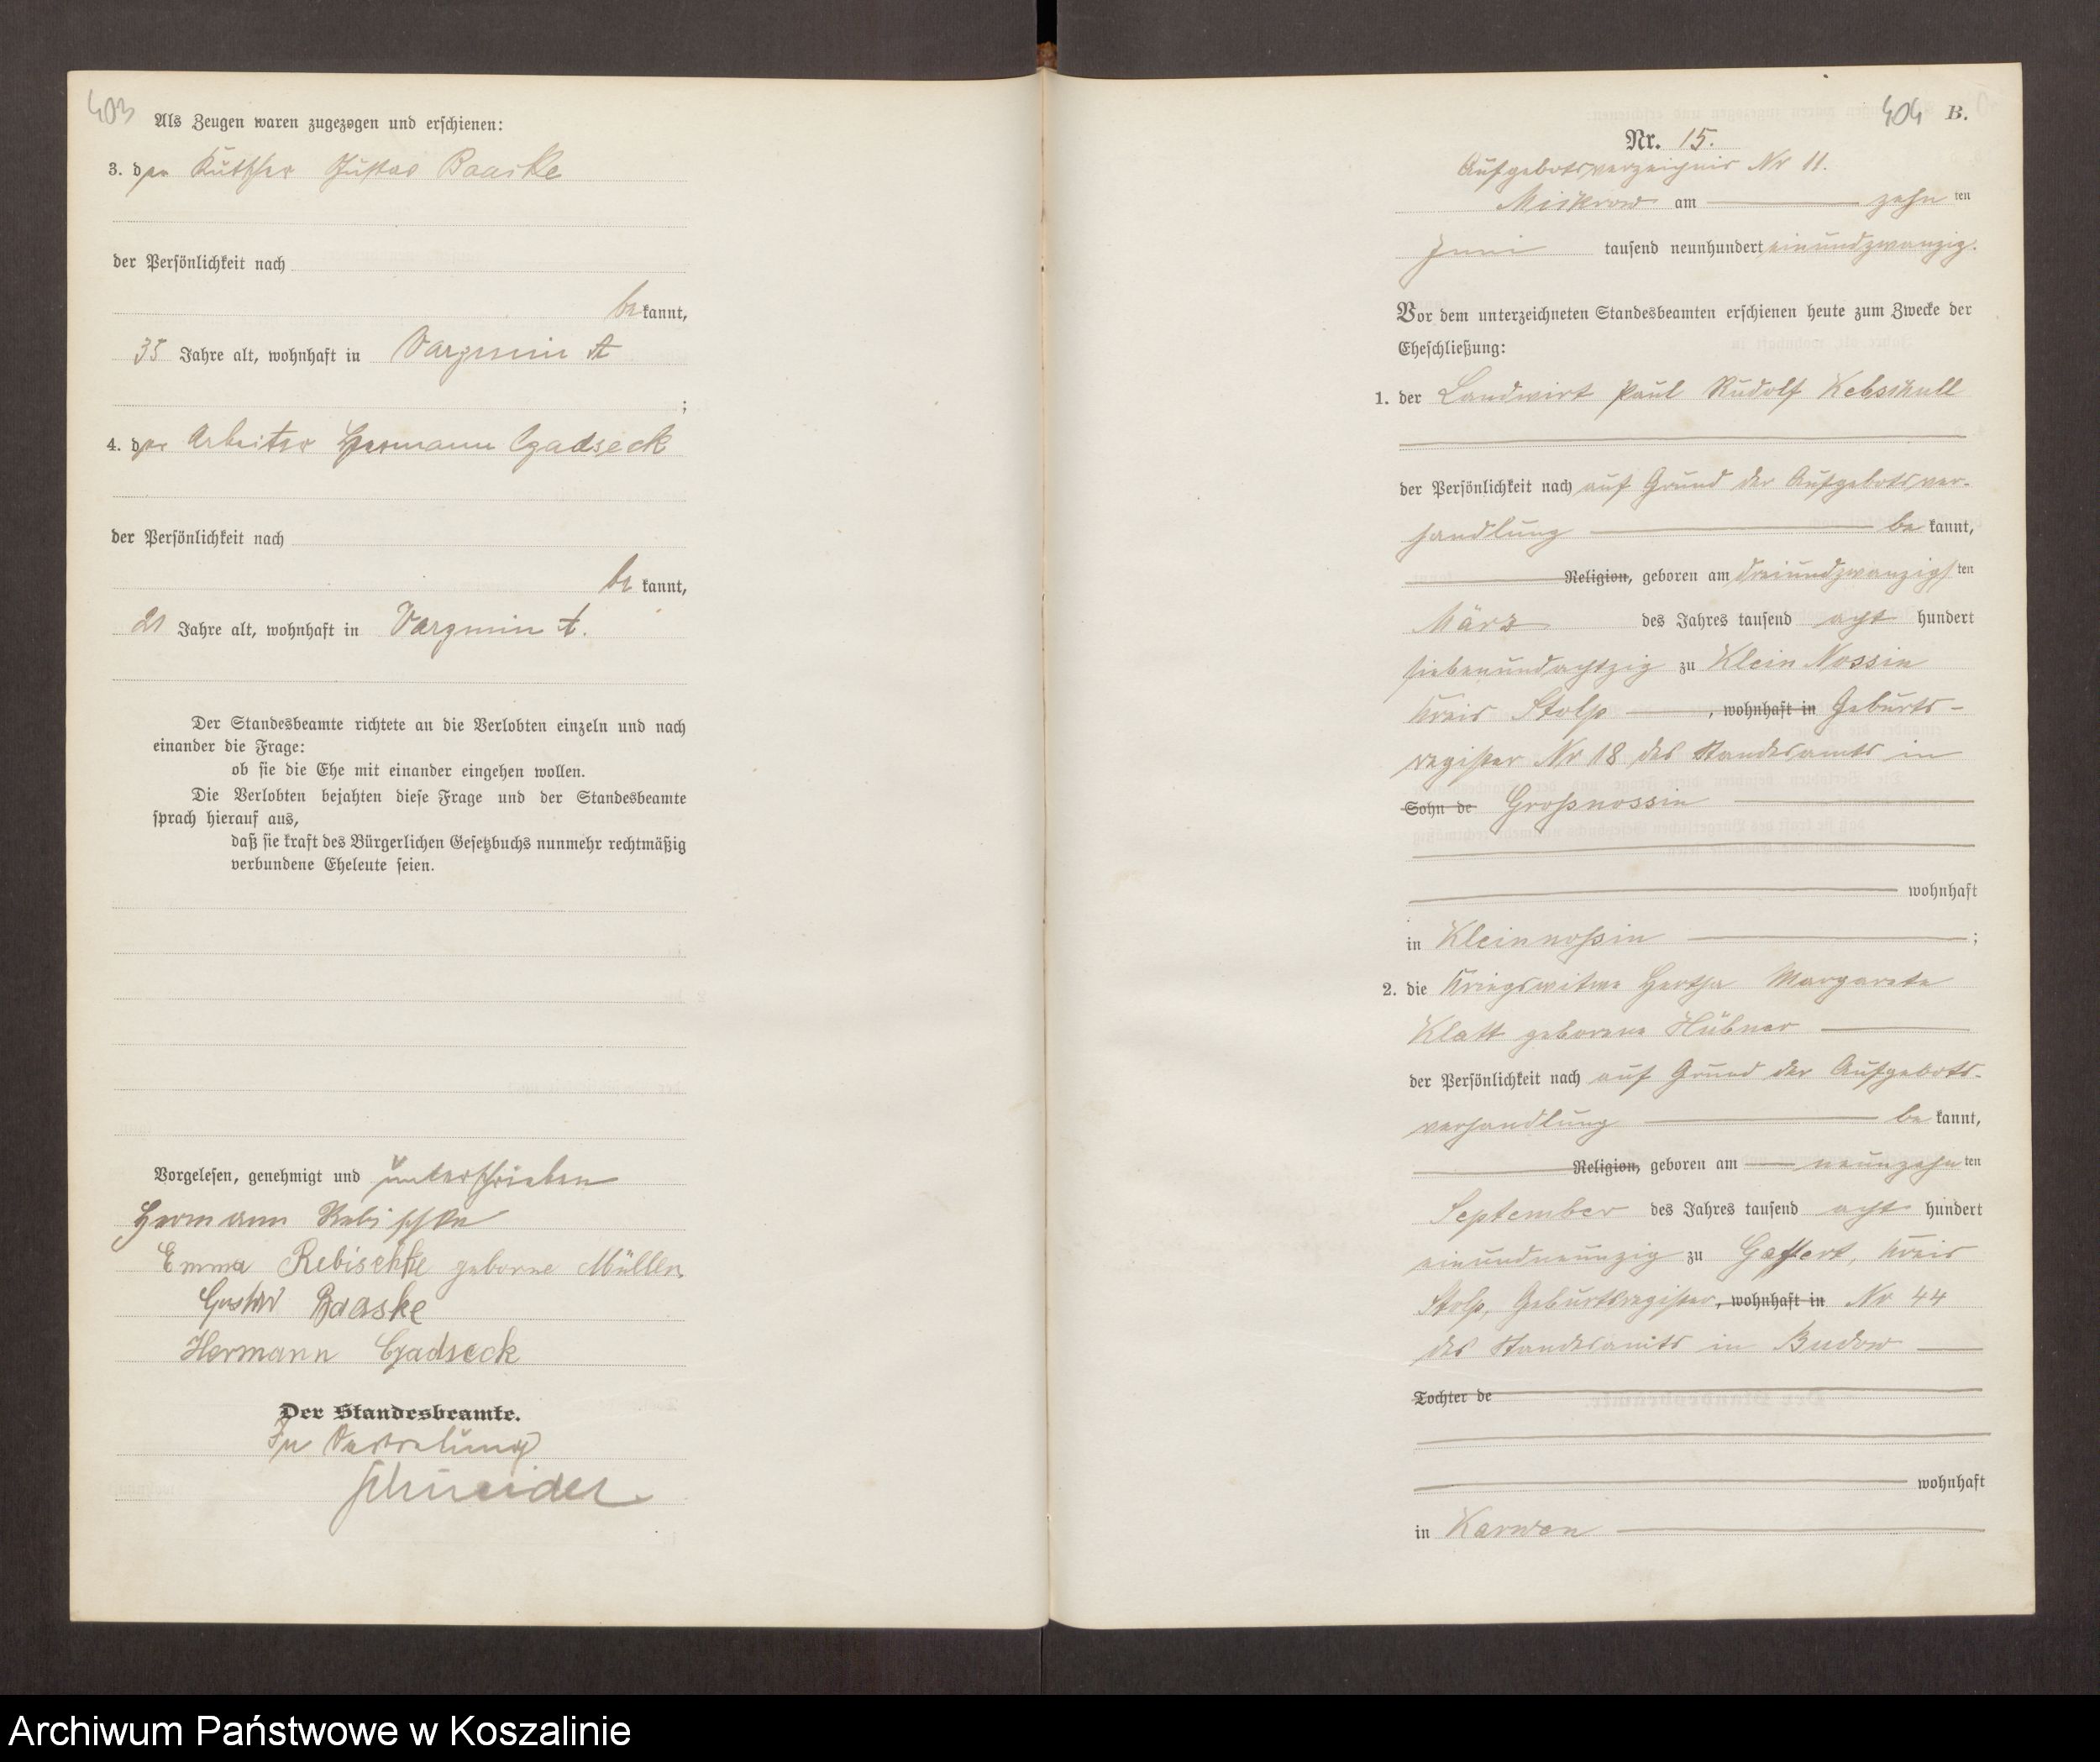 403
Als Zeugen waren zugezogen und erschienen:
3. der Kutscher Gustav Baaske
der Persönlichkeit nach
be kannt,
35 Jahre alt, wohnhaft in Vargmin A
;
4. der Arbeiter Hermann Czadseck
der Persönlichkeit nach
be kannt,
21 Jahre alt, wohnhaft in Vargmin A.
Der Standesbeamte richtete an die Verlobten einzeln und nach
einander die Frage:
ob sie die Ehe mit einander eingehen wollen.
Die Verlobten bejahten diese Frage und der Standesbeamte
sprach hierauf aus,
daß sie kraft des Bürgerlichen Gesetzbuchs nunmehr rechtmäßig
verbundene Eheleute seien.
Vorgelesen, genehmigt und unterschrieben
Hermann Rebischke
Emma Rebischke geborne Müller.
Gustav Baaske
Hermann Czadseck
Der Standesbeamte.
In Vertretung
Schneider
404 B.
Nr. 15.
Aufgebotsverzeichnis Nr 11.
Mickrow am zehn ten
Juni tausend neunhundert einundzwanzig.
Vor dem unterzeichneten Standesbeamten erschienen heute zum Zwecke der
Eheschließung:
1. der Landwirt Paul Rudolf Kebschull
der Persönlichkeit nach auf Grund der Aufgebotsver-
handlung be kannt,
Religion, geboren am dreiundzwanzigs ten
März des Jahres tausend acht hundert
siebenundachtzig zu Klein Nossin
Kreis Stolp , wohnhaft in Geburts-
register Nr 18 des Standesamts in
Sohn de Großnossin
wohnhaft
in Kleinnoßin ;
2. die Kriegswitwe Hertha Margarete
Klatt geborene Hübner
der Persönlichkeit nach auf Grund der Aufgebots-
verhandlung be kannt,
Religion, geboren am neunzehn ten
September des Jahres tausend acht hundert
einundneunzig zu Gaffert, Kreis
Stolp, Geburtsregister, wohnhaft in Nr 44
des Standesamts in Budow
Tochter de
wohnhaft
in Karwen
Archiwum Państwowe w Koszalinie